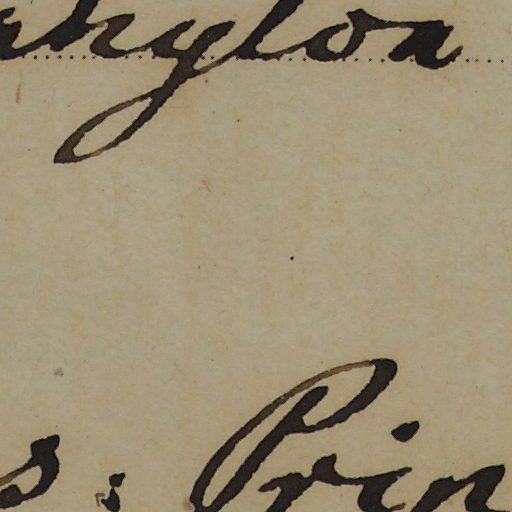 abylon
s; Prin